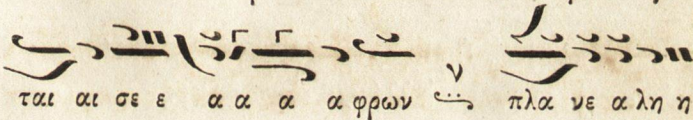 ται αι σε ε α α α α φρων ν πλα νε α λη η